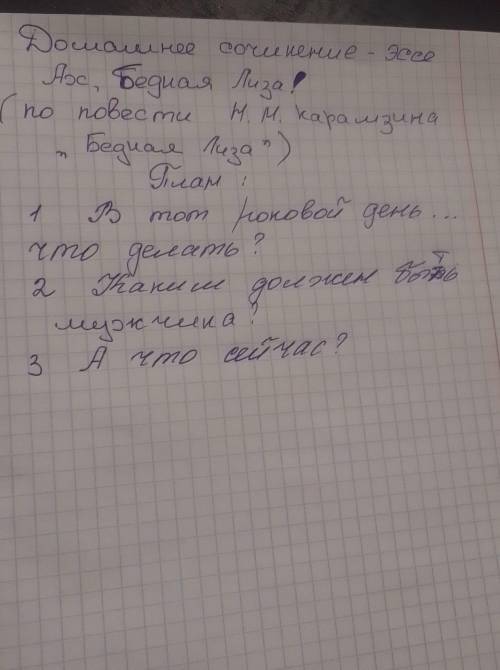 Домашнее сочинение - эссе
Ах, Бедная Лиза!
(по повести Н.М. Карамзина
„Бедная Лиза")
План:
1 В тот роковой день...
что делать?
2 Каким должен быть
мужчина?
3 А что сейчас?